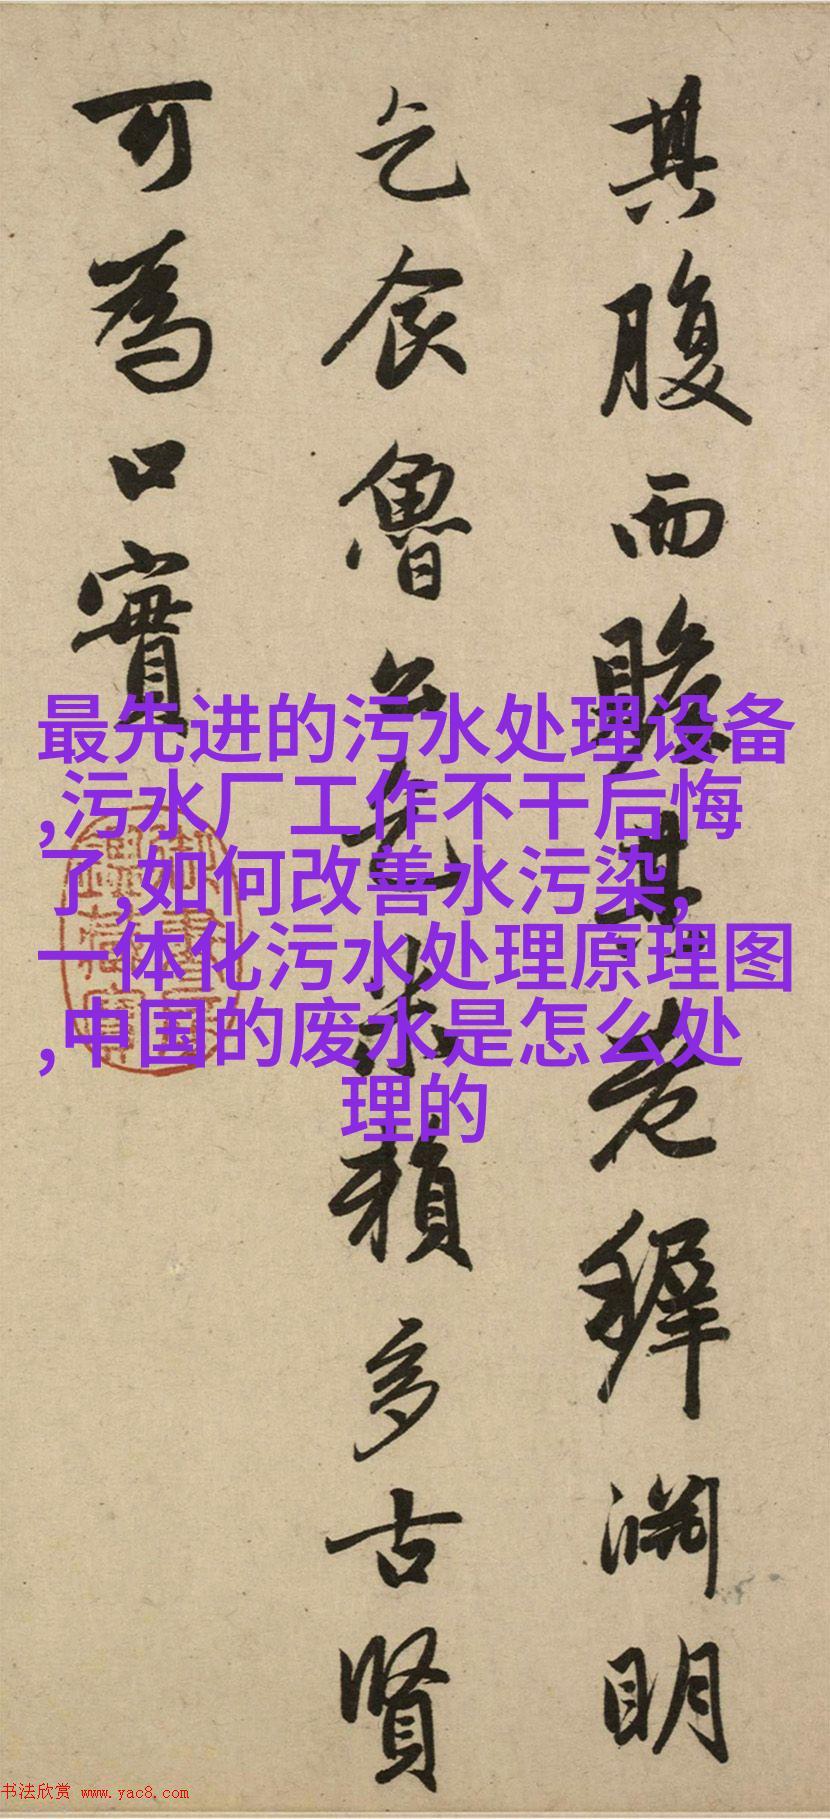 其腹而贍其老穉淵明
乞食魯公乞米賴多古賢
可為口實
最先进的污水处理设备
,污水厂工作不干后悔
了,如何改善水污染,
一体化污水处理原理图
,中国的废水是怎么处
理的
书法欣赏 www.yac8.com